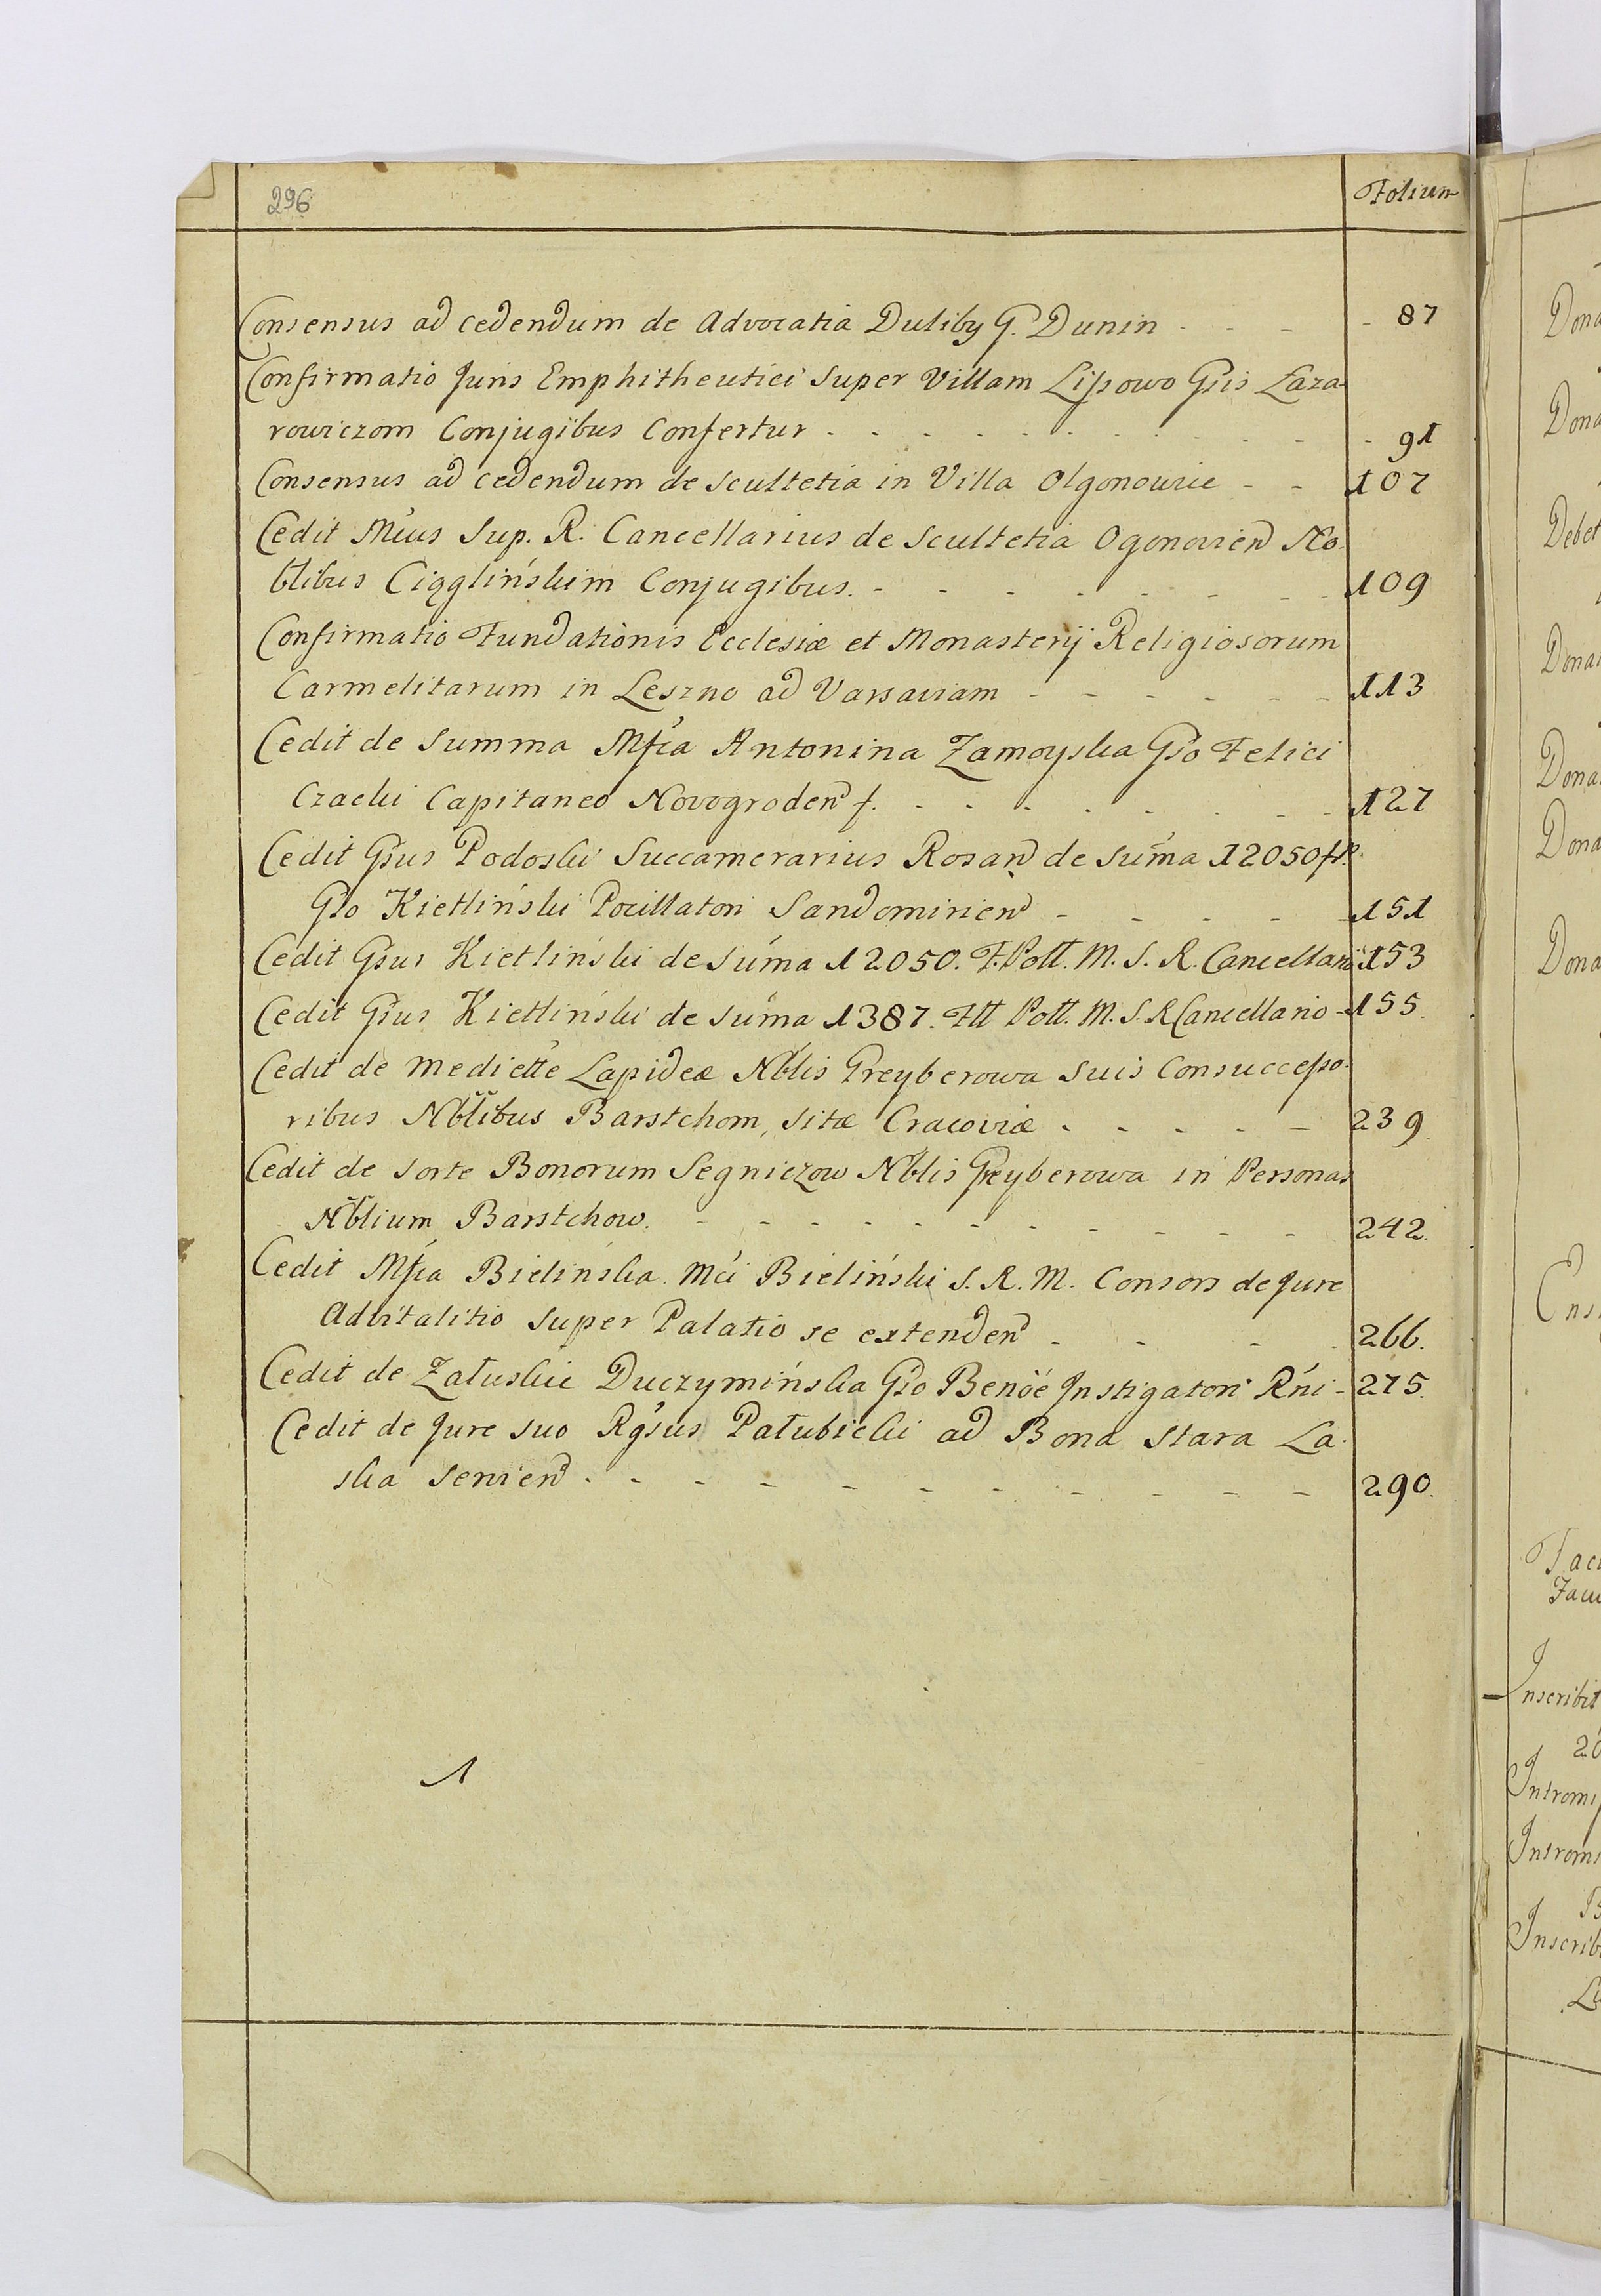 296
Folium
Consensus ad cedendum de Advocatia Duliby G. Dunin - - - - 87
Confirmatio Juris Emphitheutici super Villam Lipowo Gsis Łaza-
rowiczom Conjugibus Confertur - - - - - - - - - - 91
Consensus ad cedendum de scultetia in Villa Olgonowie - - 107
Cedit Mcus Sup. R. Cancellarius de Scultetia Ogonovien No-
blibus Conjugibus. - - - - - - - 109
Confirmatio Fundationis Ecclesiæ et Monasterij Religiosorum
Carmelitarum in Leszno ad Varsaviam - - - - - - 113
Cedit de Summa Mfca Antonina Zamoyska Gso Felici
Czacki Capitaneo Novogroden f. - - - - - - - 127
Cedit Gsus Podoski Succamerarius Rosan de suma 12050 fp.
Gso Kietliński Pocillatori Sandomirien - - - - - 151
Cedit Gsus Kietliński de suma 12050. F. Poll. M. S. R. Cancellario 153
Cedit Gsus Kietliński de suma 1387. Fll Poll. M. S. R Cancellario - 155.
Cedit de medictte Lapideæ Nblis Greyberowa suis Consuccesso-
ribus Nblibus Barstchom, sitæ Cracoviæ - - - - - 239.
Cedit de sorte Bonorum Segniczow Nblis Greyberowa in Personas
Nblium Barstchow. - - - - - - - - - - - 242.
Cedit Mfca Bielińska Mci Bieliński S. R. M. Consors de Jure
Advitalitio super Palatio se extenden - - - - 266.
Cedit de Załuskie Duczymińska Gso Benoe Instigatori Rni - 275.
Cedit de Jure suo Rgsus Pałubicki ad Bona Stara La-
ska servien - - - - - - - - - - 290.